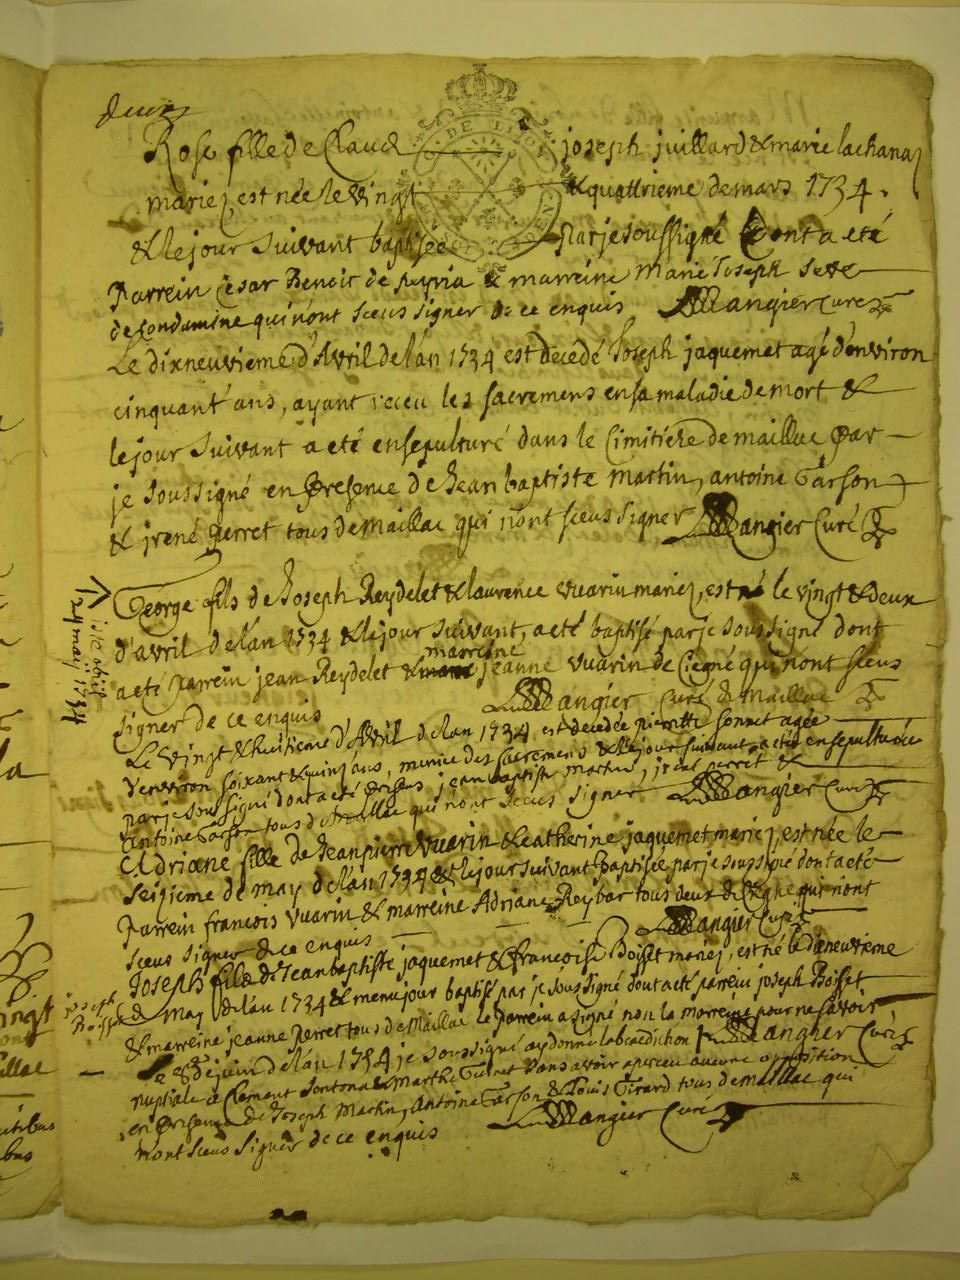 deux
Rose fille de Claude joseph juillard & marie lachana
mariez, est née le vingt & quattrieme de mars 1734.
& le jour suivant baptisée par je soussigné dont a eté
parrein Cesar Benoit de peyria & marreine Marie Joseph
de Condamine qui n'ont sceus signer de ce enquis Mangier Curé
Le dixneuvieme d'Avril de l'an 1734 est décedé Joseph jaquemet agé d'environ
cinquant' ans, ayant receu les sacremens en sa maladie de mort &
le jour suivant a eté ensepulturé dans le Cimitiere de maillac par
je soussigné en presence de Jean baptiste martin, antoine Carson
& jrené perret tous de Maillac qui n'ont sceus signer Mangier Curé
George fils de Joseph Reydelet & laurence vuarin mariez, est né le vingt & deux
d'avril de l'an 1734 & le jour suivant, a eté baptisé par je soussigné dont
marreine
a eté parrein jean Reydelet & jeanne vuarin de Ciegne qui n'ont sceus
signer de ce enquis Mangier Curé de Maillac
1734
Le vingt & huitieme d'Avril de l'an 1734, est decedée pierrette sonnet agée
d'environ soixant & quinz ans, munie des sacremens & le jour suivant a eté ensepulturée
par je soussigné dont a eté presens jean baptiste martin, jrené perret &
Antoine Carson tous de Maillac qui n'ont sceus signer Mangier Curé
Adriane fille de Jean pierre vuarin & catherine jaquemet mariez, est née le
seizieme de may de l'an 1734 & le jour suivant baptisée par je soussigné dont a eté
Parrein francois vuarin & marreine Adriane Roybar tous deux de qui n'ont
sceus signer de ce enquis Mangier Curé
Joseph fils de Jean baptiste jaquemet & francoise Boisset mariez, est né le dixneuvieme
joseph
Boisset
de may de l'an 1734 & meme jour baptisé par je soussigné dont a eté parrein joseph Boisset
& marreine jeanne parret tous de Maillac le parrein a signé non la marreine pour ne savoir
Mangier Curé
Le 8 de juin de l'an 1734 je soussigné ay donné la benediction
nuptiale à Clement sontona & marthe sans avoir aperceu aucune opposition
en presence de Joseph martin, Antoine Carson & Louis Girard tous de maillac qui
n'ont sceus signer de ce enquis Mangier Curé